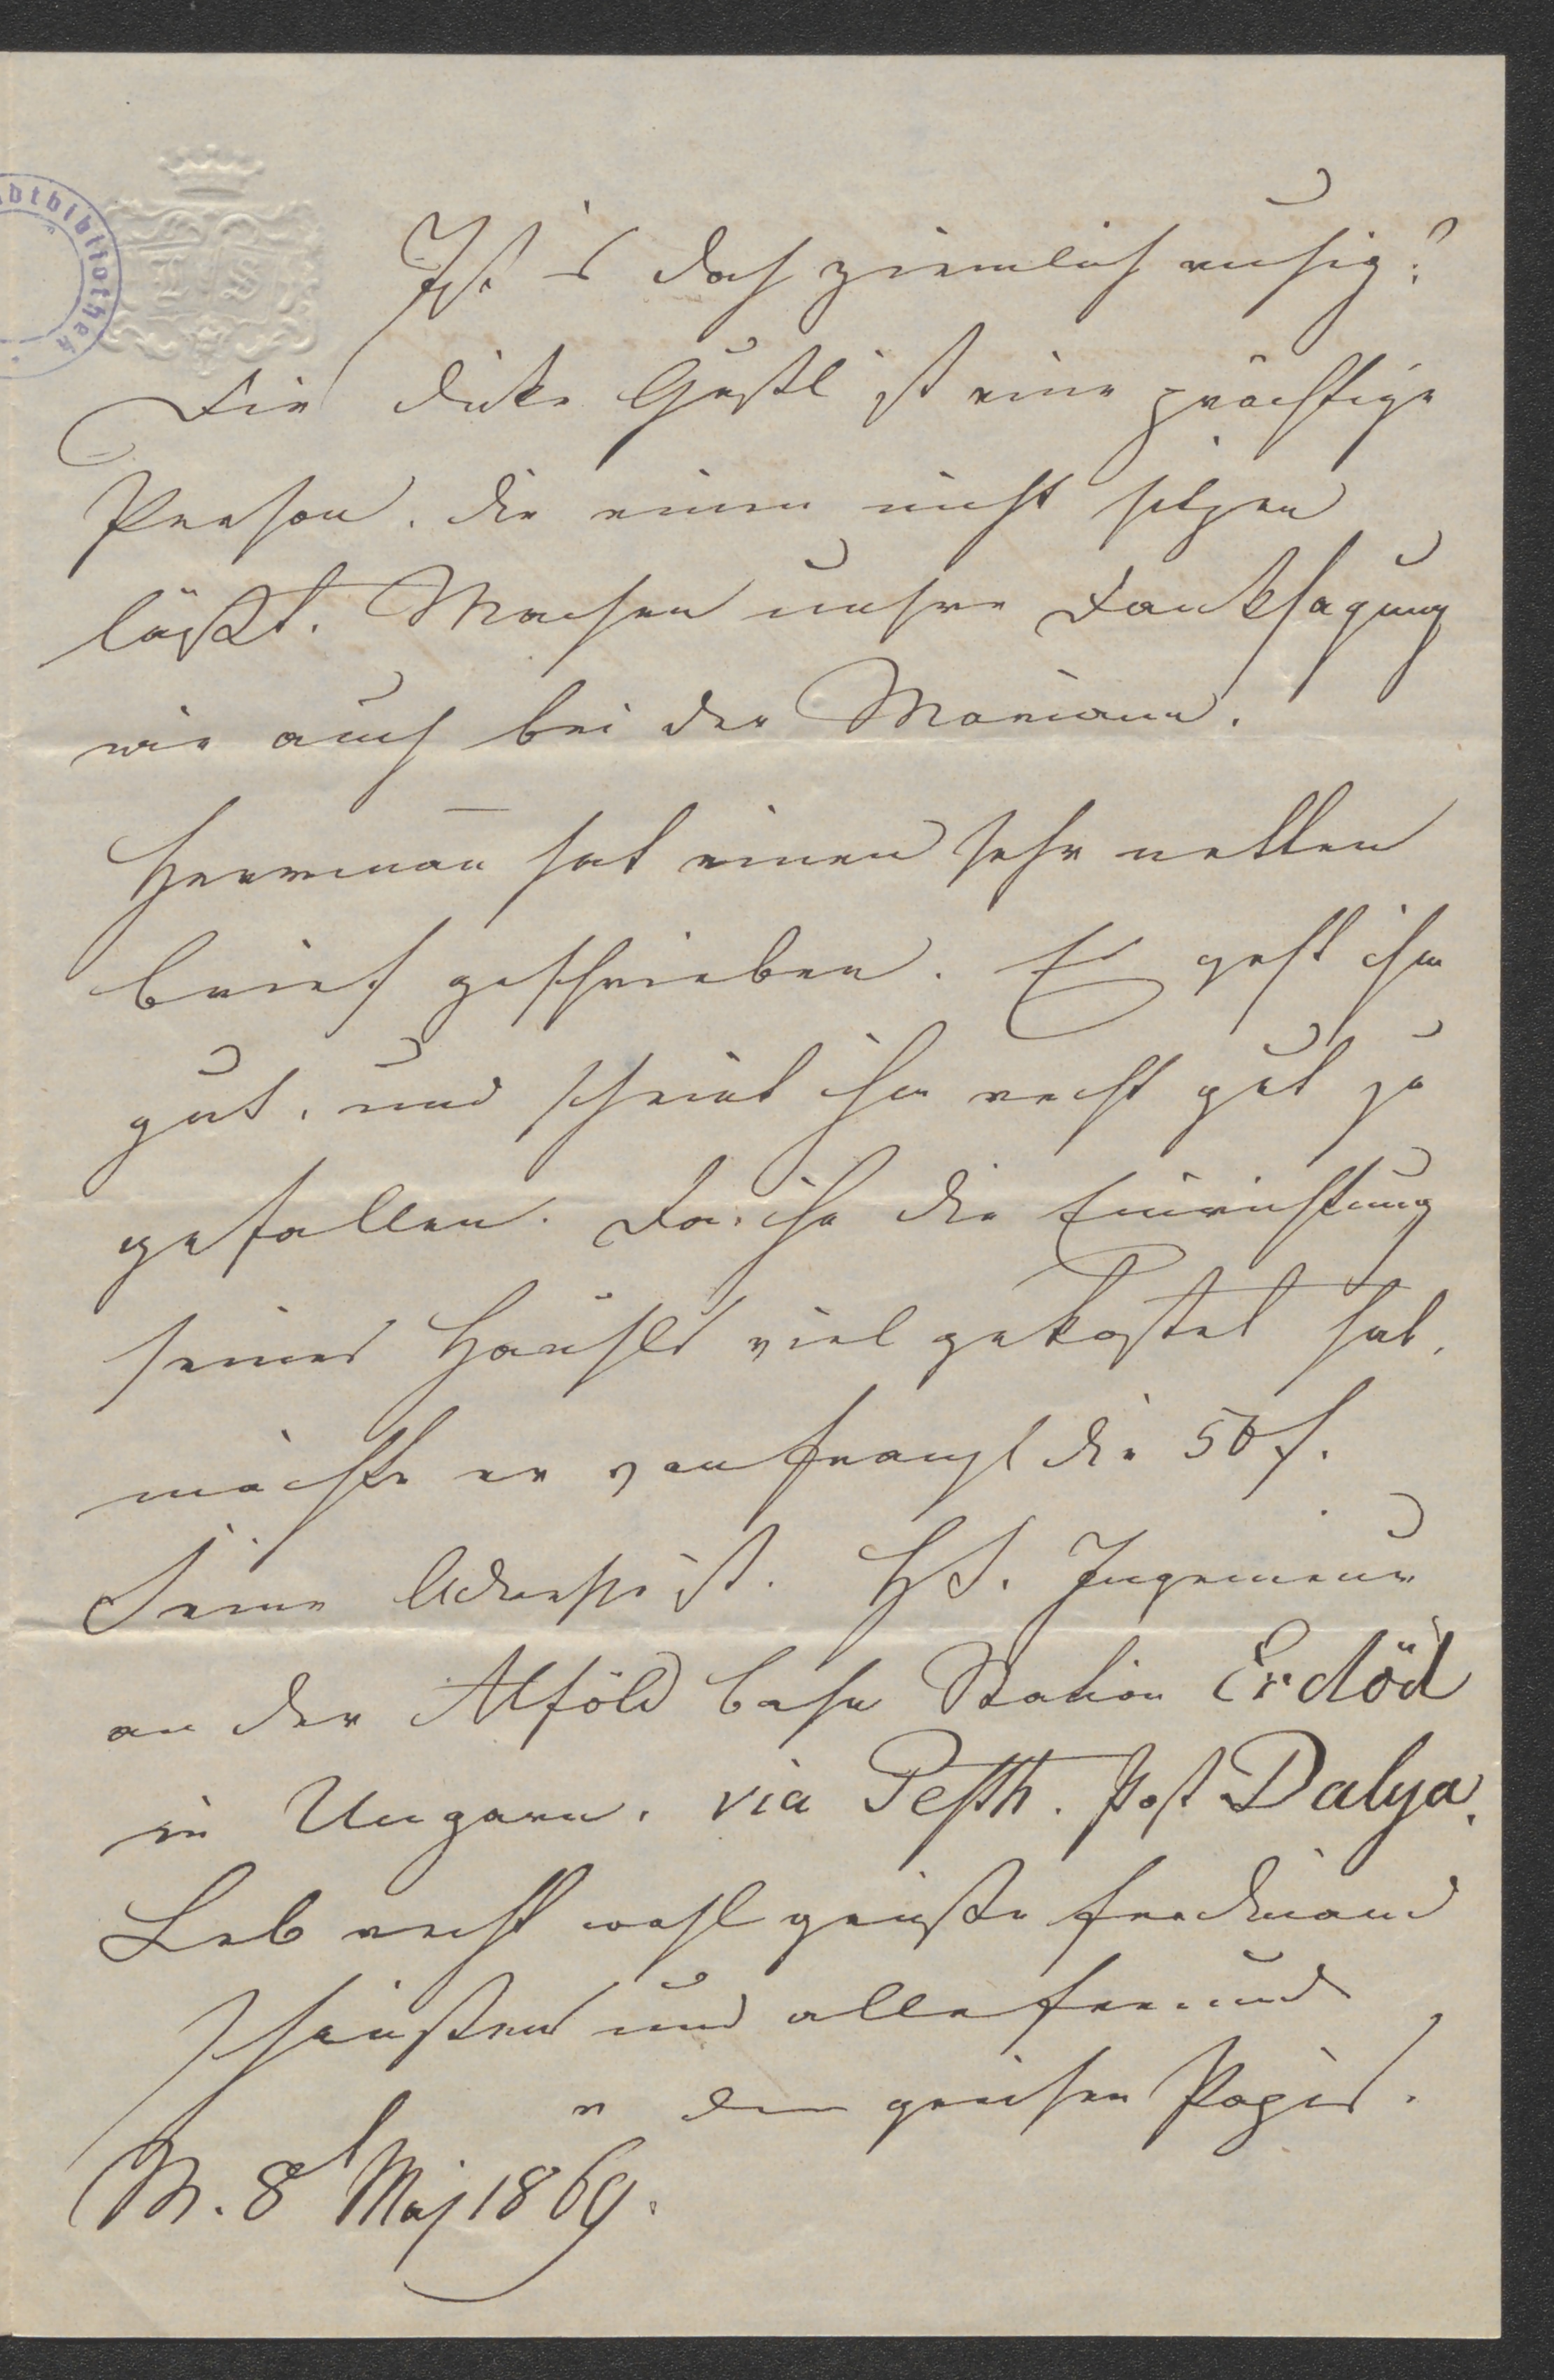 dtbibliothek
LS
Ist 's doch ziemlich ruhig?
Die dicke Gustl ist eine prächtige
Person, die einen nicht sitzen
läßt. Machen unsre Danksagung
wie auch bei der Mariann.
Herrmañ hat einen sehr netten
Brief geschrieben. Es geht ihm
gut, und scheint ihm recht gut zu
gefallen. Da ihm die Einrichtung
seines Häusls viel gekostet hat,
möchte er von Franzl die 50 f.
Seine Adresse ist. HS. Ingenieur
an der Alföld Bahn Station Erdöd
in Ungarn. via Pesth. Post Dalya.
Leb recht wohl grüße Ferdinand
und alle Freunde
den
M. 8 Maj 1869.